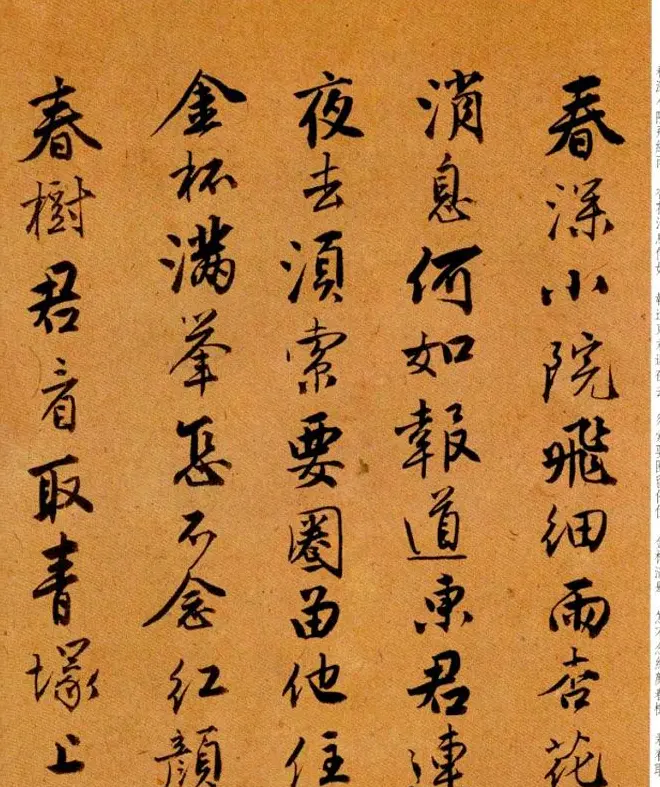 春深小院飛細雨杏花
消息何如報道東君連
夜去須索要圈留他住
金杯滿舉怎不念紅顏
春樹君看取青塚上